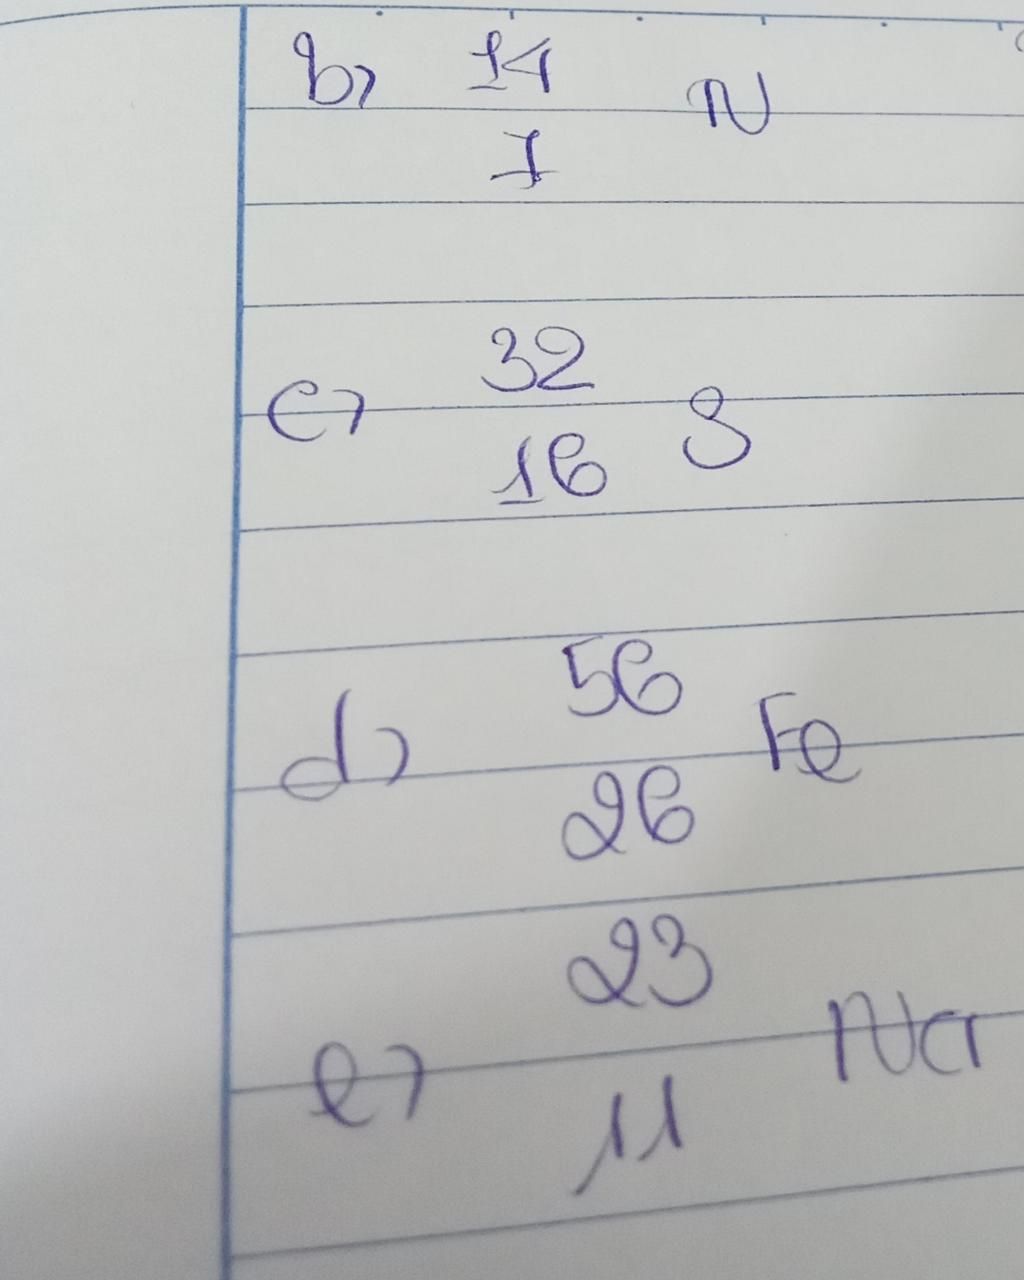 b) 14 N
7
32
c) S
16
56
d) Fe
26
23
e) Na
11